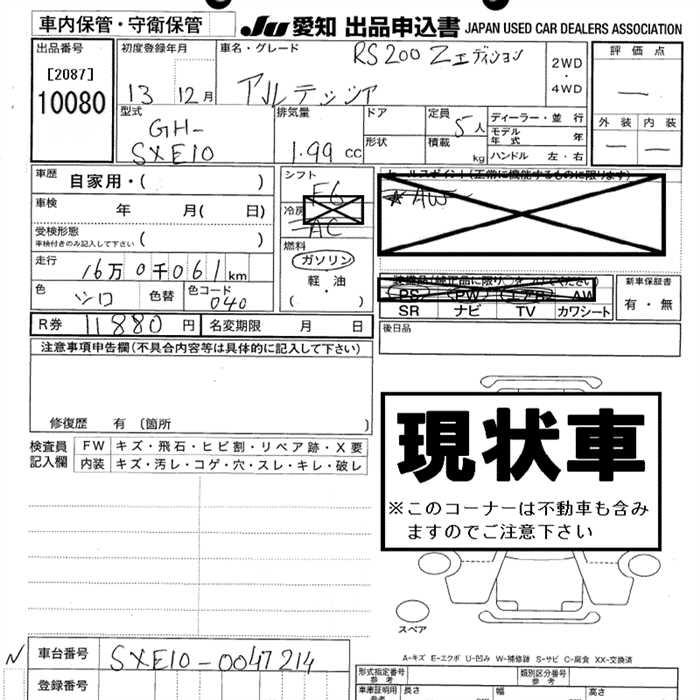 車内保管・守衛保管
Ju 愛知 出品申込書 JAPAN USED CAR DEALERS ASSOCIATION
出品番号
[2087]
10080
初度登録年月
13 12月
車名・グレード
RS200 Zエディション
アルテッツァ
2WD
・
4WD
評価点
—
外装 内装
— —
型式
GH-
SXE10
排気量
1.99 cc
ドア
形状
定員
5人
積載
kg
ディーラー・並行
モデル年式 年
ハンドル 左・右
車歴
自家用・( )
車検
年 月( 日)
受検形態
車検付きのみ記入して下さい
( )
走行
16万0千061km
色
シロ
色替
色コード
040
R券 11880円
名変期限 月 日
シフト
F6
冷房
AC
燃料
ガソリン
軽・油
( )
セールスポイント(正常に機能するものに限ります)
AW
装備品(純正品に限り○をつけてください)
PS PW エアB AW
SR ナビ TV カワシート
新車保証書
有・無
後日品
注意事項申告欄(不具合内容等は具体的に記入して下さい)
修復歴 有 〔箇所 〕
検査員
記入欄
FW キズ・飛石・ヒビ割・リペア跡・X要
内装 キズ・汚レ・コゲ・穴・スレ・キレ・破レ
現状車
※このコーナーは不動車も含み
ますのでご注意下さい
スペア
A-キズ E-エクボ U-凹み W-補修跡 S-サビ C-腐食 XX-交換済
N
車台番号 SXE10-0047214
登録番号
形式指定番号
参考
類別区分番号
参考
車庫証明用
参考
長さ 幅 高さ